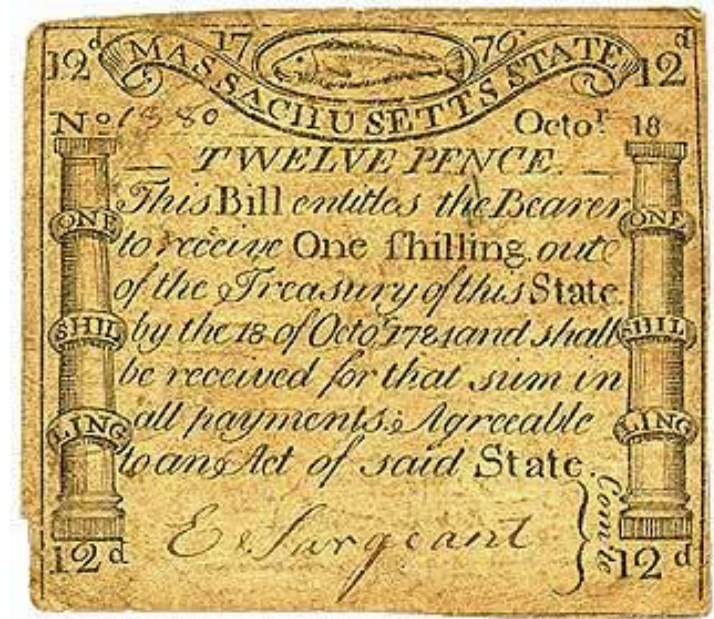 12d 17 76 12d
MASSACHUSETTS STATE
No 1380 Octor. 18
TWELVE PENCE.
This Bill entitles the Bearer
to receive One ſhilling out
of the Treasury of this State
by the 18 of Octor. 1781 and shall
be received for that sum in
all payments; Agreeable
to an Act of said State.
ONE ONE
SHIL SHIL
LING LING
E Sargeant
Comte
12d 12d